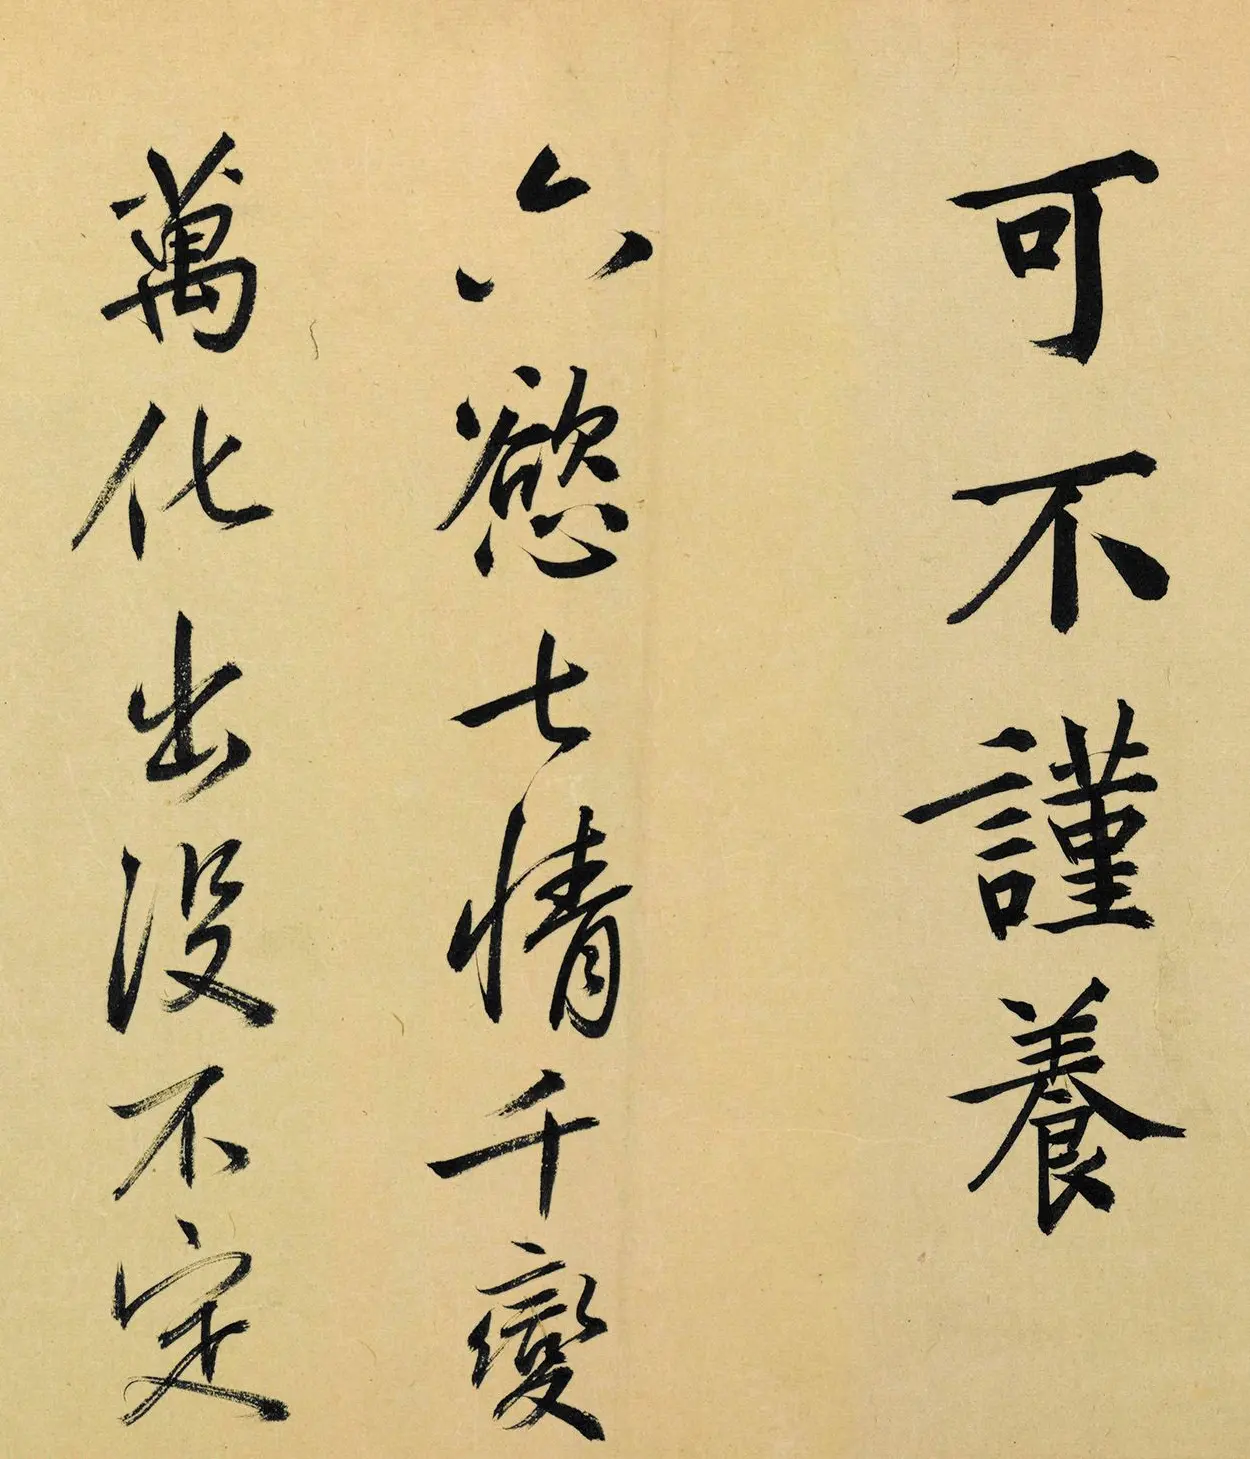 可不謹養
六慾七情千變
萬化出没不定